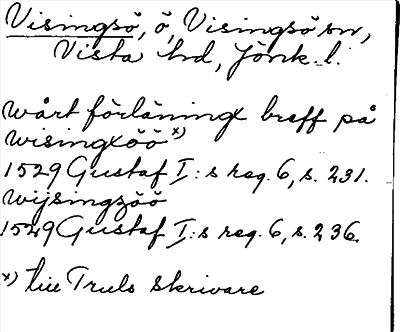 Visingsö, ö, Visingsö sn,
Vista hd, Jönk. l.
wårt förläningx breff på
wisingxöö x)
1529 Gustaf I:s reg. 6, s. 231.
wijsingzöö
1529 Gustaf I:s reg. 6, s. 236.
x) till Truls skrivare